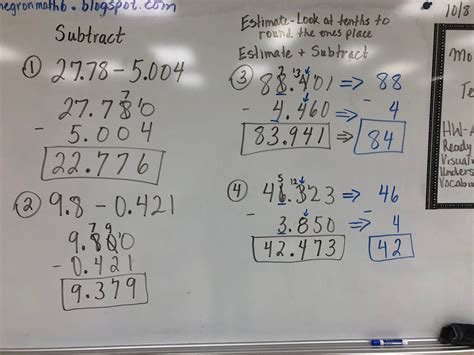 negronmath6.blogspot.com
Subtract
① 27.78 - 5.004
7
27.780
- 5.004
22.776
② 9.8 - 0.421
7 9
9.800
- 0.421
9.379
Estimate - Look at tenths to
round the ones place
Estimate + Subtract
7 13
③ 88.401 => 88
- 4.460 => - 4
83.941 => 84
5 12
④ 46.323 => 46
- 3.850 => - 4
42.473 42
10/8
Mo
Te
HW-A
Ready
Visual
Unders
Vocabu